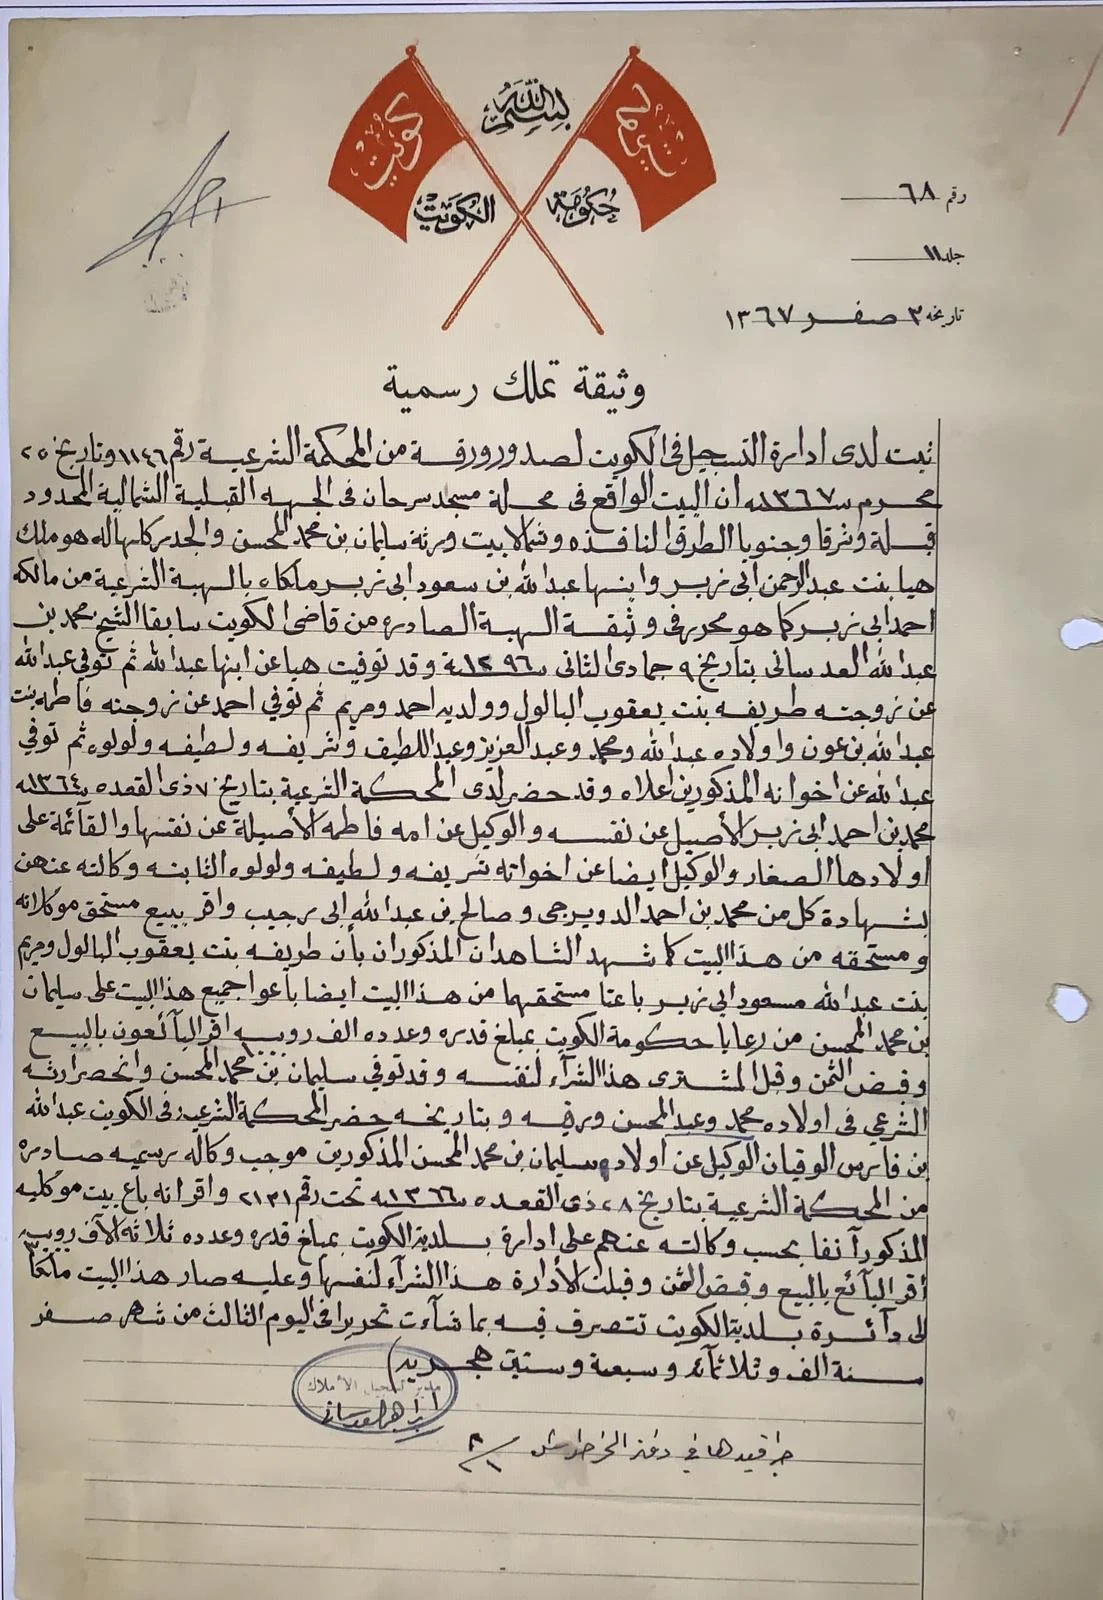 بسم الله
كويت
كويت
حكومة الكويت
رقم ٦٨
جلد ١١
تاريخه ٣ صفر ١٣٦٧
وثيقة تملك رسمية
ثبت لدى ادارة التسجيل في الكويت لصدور ورقة من المحكمة الشرعية رقم ١١٤٦ وتاريخ ٢٥
محرم سنة ١٣٦٧ ان البيت الواقع في محلة مسجد سرحان في الجهه القبلية الشمالية المحدود
قبلة وشرقا وجنوبا الطرق النافذه وشمالا بيت ورثة سليمان بن محمد المحسن والجدر كلها له هو ملك
هيا بنت عبدالرحمن ابي زبر وابنها عبدالله بن سعود ابي زبر ملكاه بالهبة الشرعية من مالكه
احمد ابي زبر كما هو محرر في وثيقة الهبة الصادره من قاضى الكويت سابقا الشيخ محمد بن
عبدالله العدساني بتاريخ ٩ جمادى الثاني سنة ١٢٩٦ وقد توفيت هيا عن ابنها عبدالله ثم توفي عبدالله
عن زوجته طريفه بنت يعقوب البالول وولديه احمد ومريم ثم توفي احمد عن زوجته فاطمه بنت
عبدالله بن عون واولاده عبدالله ومحمد وعبدالعزيز وعبداللطيف وشريفه ولطيفه ولولوه ثم توفي
عبدالله عن اخوانه المذكورين اعلاه وقد حضر لدى المحكمة الشرعية بتاريخ ٧ ذى القعده سنة ١٣٦٤
محمد بن احمد ابي زبر الأصيل عن نفسه والوكيل عن امه فاطمه الأصيلة عن نفسها والقائمة على
اولادها الصغار والوكيل ايضا عن اخواته شريفه ولطيفه ولولوه الثابته وكالته عنهن
بشهادة كل من محمد بن احمد الدويرجى وصالح بن عبدالله ابي رجيب واقر ببيع مستحق موكلاته
ومستحقه من هذا البيت كما شهد الشاهدان المذكوران بأن طريفه بنت يعقوب البالول ومريم
بنت عبدالله مسعود ابي زبر باعتا مستحقهما من هذا البيت ايضا باعوا جميع هذا البيت على سليمان
بن محمد المحسن من رعايا حكومة الكويت بمبلغ قدره وعدده الف روبيه ١٠٠٠ اقر البائعون بالبيع
وقبض الثمن وقبل المشترى هذا الشرآء لنفسه وقد توفي سليمان بن محمد المحسن وانحصر ارثه
الشرعي في اولاده محمد وعبدالمحسن ورقيه وبتاريخه حضر المحكمة الشرعيه في الكويت عبدالله
بن فارس الوقيان الوكيل عن اولاد سليمان بن محمد المحسن المذكورين موجب وكاله رسميه صادره
من المحكمة الشرعية بتاريخ ٢٨ ذى القعده سنة ١٣٦٦ تحت رقم ٢١٣١ واقر انه باع بيت موكليه
المذكور آنفا بحسب وكالته عنهم على ادارة بلدية الكويت بمبلغ قدره وعدده ثلاثة الآف روبيه ٣٠٠٠
أقر البآئع بالبيع وقبض الثمن وقبلت الأدارة هذا الشرآء لنفسها وعليه صار هذا البيت ملكا
الى دآئرة بلدية الكويت تتصرف فيه بما شآءت تحريرا في اليوم الثالث من شهر صفر
سنة الف وثلاثمآئة وسبعة وستين هجريه
مدير تسجيل الأملاك
جرا قيدها في دفتر الخرطوش